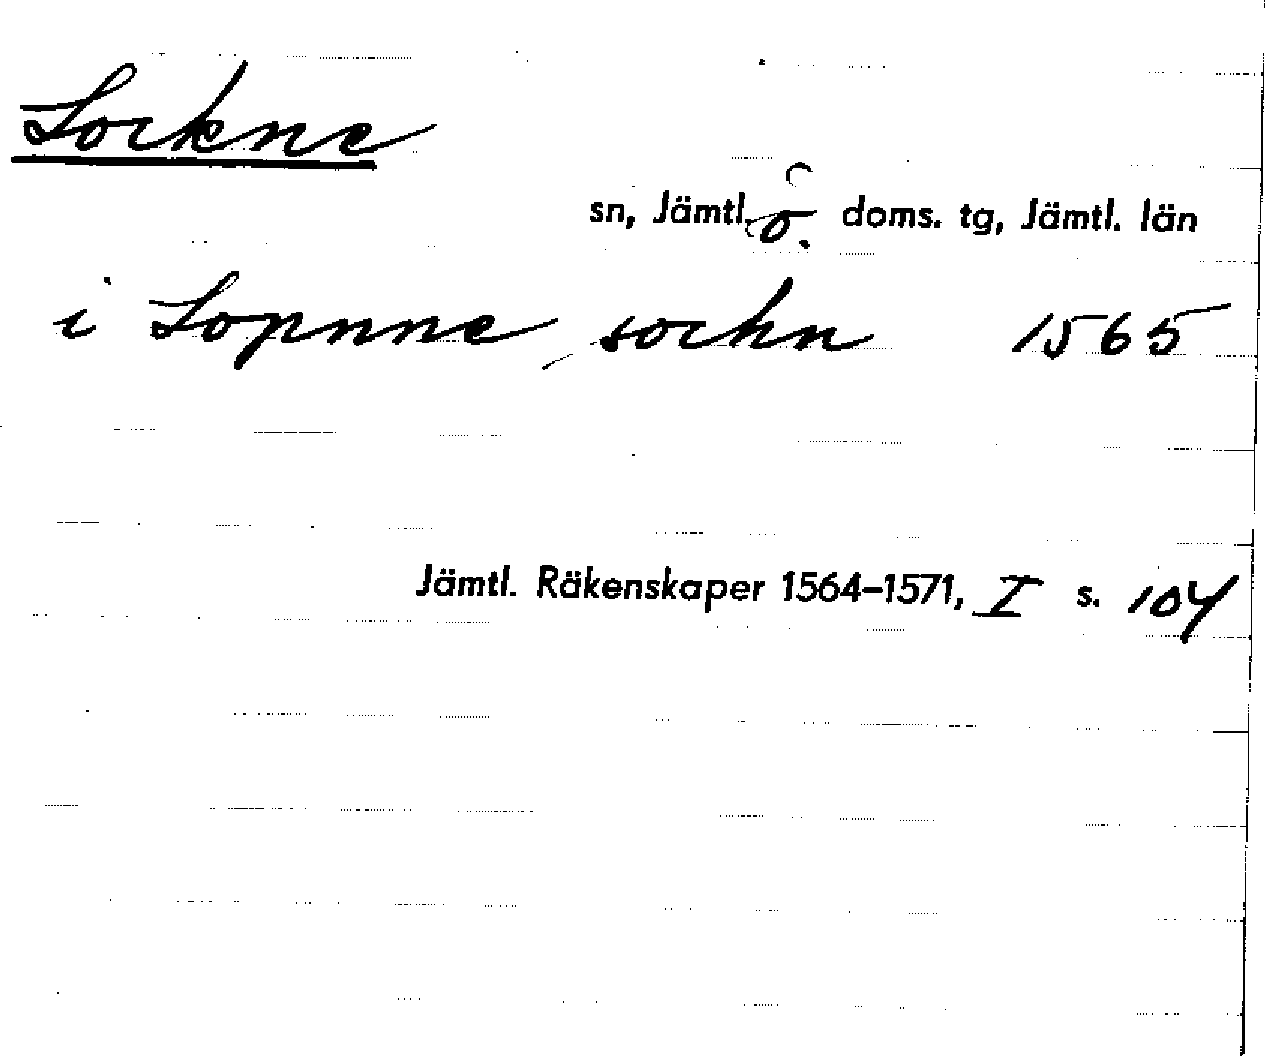 Lockne
sn, Jämtl. ö. doms. tg, Jämtl. län
i Lopnne sochn 1565
Jämtl. Räkenskaper 1564-1571, I s. 104